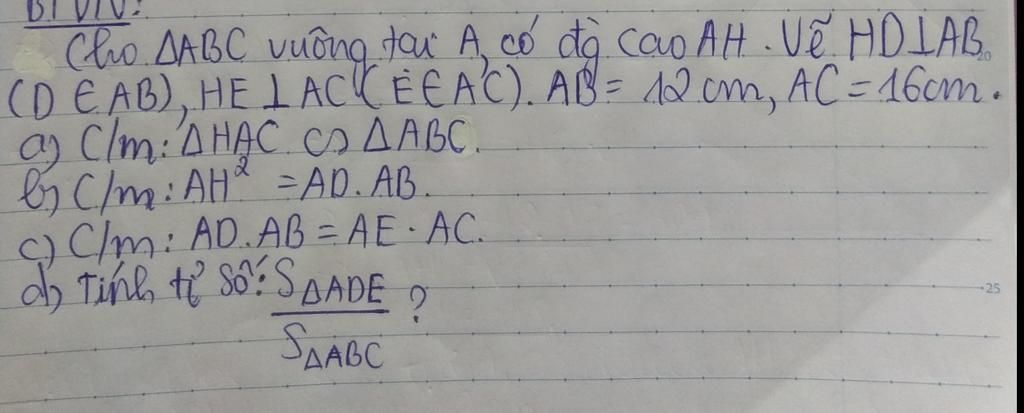 BTVN:
Cho ΔABC vuông tại A, có đg cao AH. Vẽ HD⊥AB
(D ∈ AB), HE ⊥ AC (E ∈ AC). AB = 12 cm, AC = 16cm.
a) C/m: ΔHAC ∽ ΔABC.
b) C/m: AH² = AD. AB.
c) C/m: AD. AB = AE. AC.
d) Tính tỉ số: SΔADE / SΔABC ?
20
25